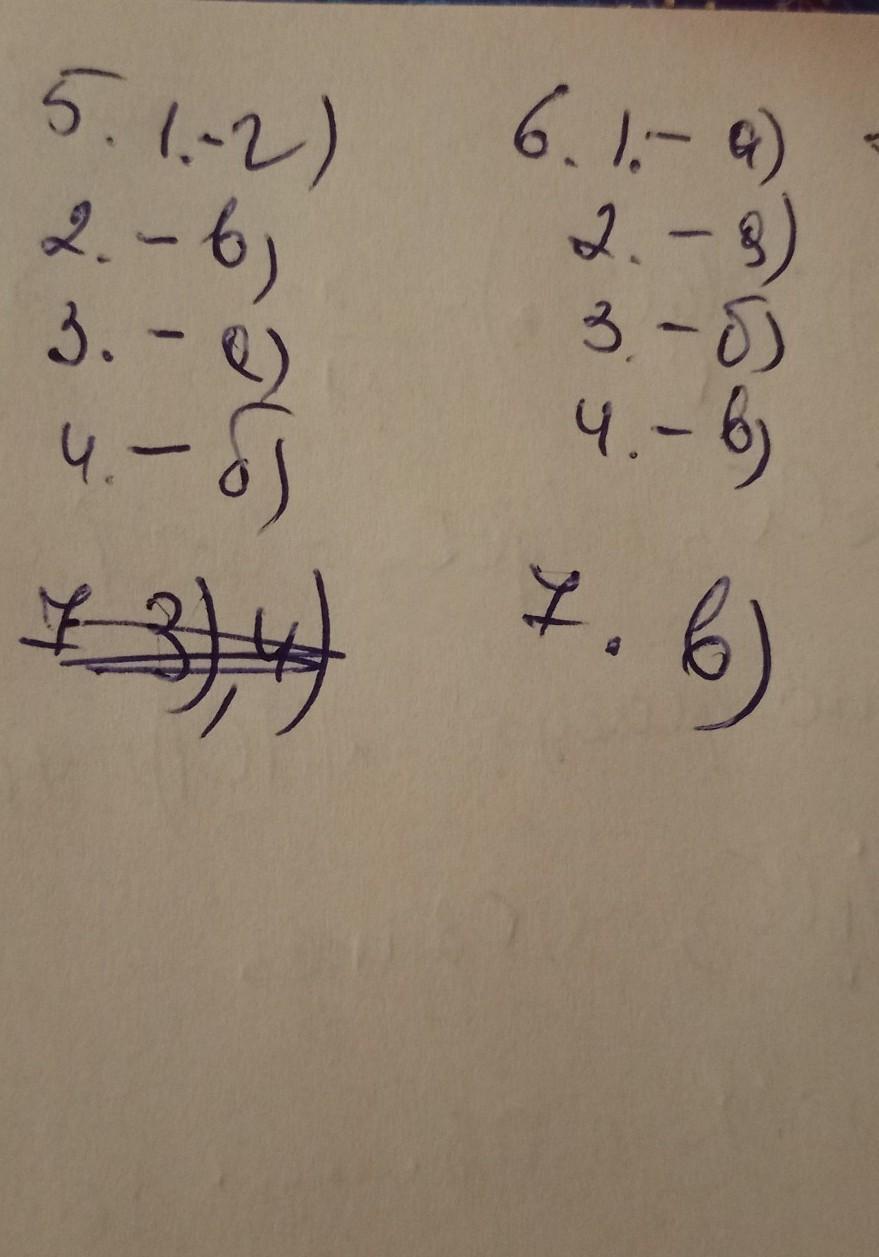 5. 1.-г)
2. - в)
3. - а)
4. - б)
7 3), 4)
6. 1.- а)
2. - г)
3. - б)
4. - в)
7. в)